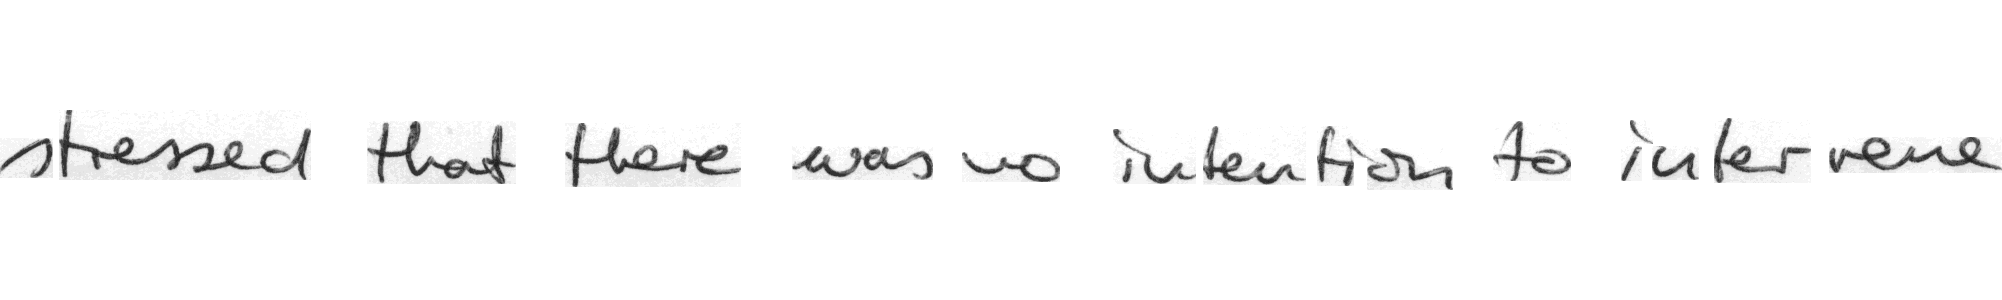 stressed that there was no intention to intervene